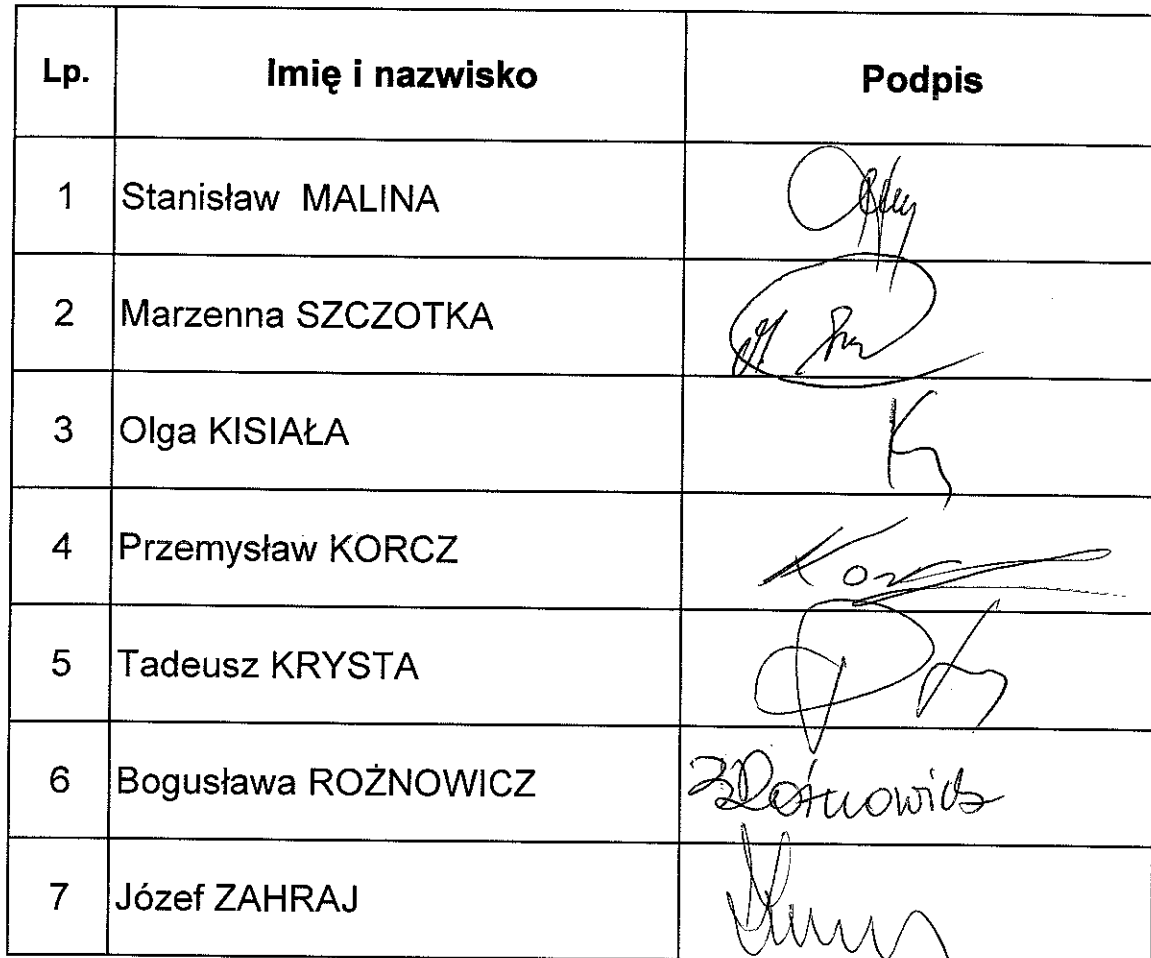 Lp. Imię i nazwisko Podpis
1 Stanisław MALINA
2 Marzenna SZCZOTKA
3 Olga KISIAŁA
4 Przemysław KORCZ
5 Tadeusz KRYSTA
6 Bogusława ROŻNOWICZ BRożnowicz
7 Józef ZAHRAJ